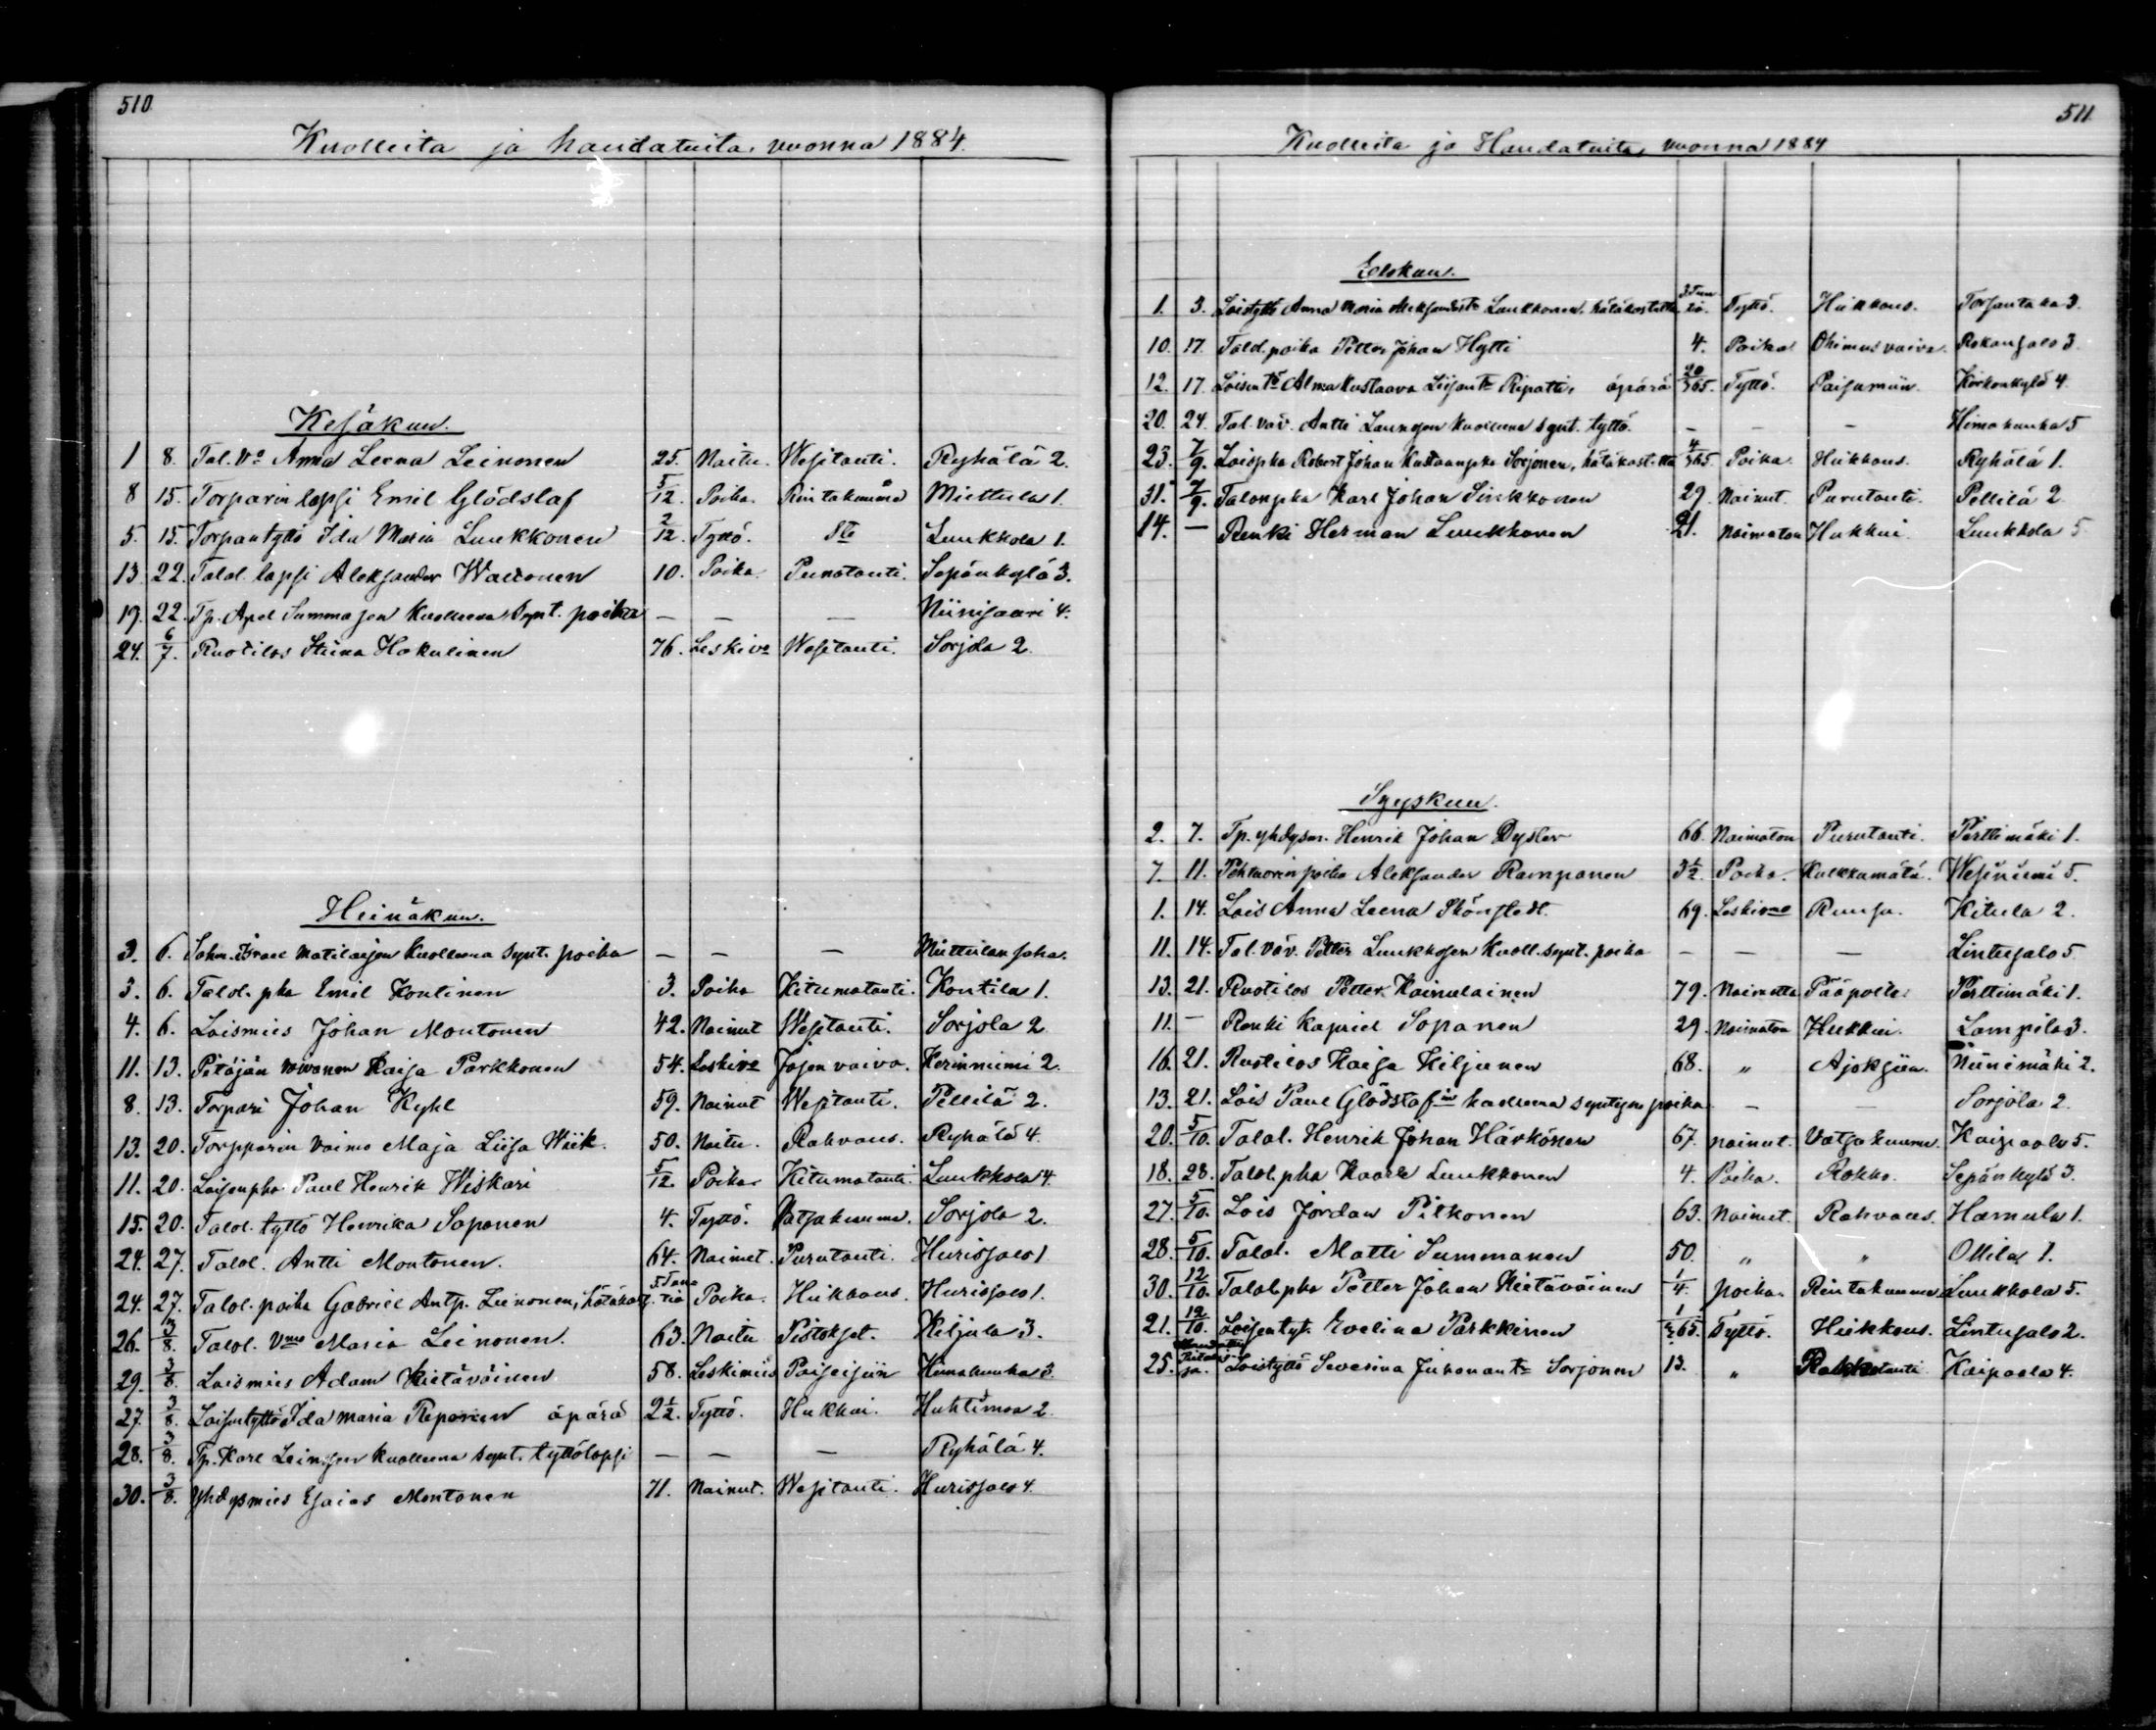 510
Kuolleita ja haudatuita, vuonna 1884.
Kesäkuu.
1 8. Tal. vo Anna Leena Leinonen 25. Naitu. Wesitauti. Ryhälä 2.
8 15. Torparin lapsi Emil Glödstaf 5/12. Poika. Rintakuume Miettula 1.
5. 15. Torpantyttö Ida Maria Luukkonen 2/12. Tyttö. Luukkola 1.
13. 22. Talol. lapsi Aleksander 10. Poika. Punatauti. Sepänkylä 3.
19. 22. Tp. Apel Summasen kuolleena synt. poika — — — Niinisaari 4.
24. 6/7. Ruotilas Stiina Hakulinen 76. Leskivo Wesitauti. Sorjola 2.
Heinäkuu.
3. 6. Israel Matilaisen kuolleena synt. poika — — — Miettulan
3. 6. Talol. pka Emil Kontinen 3. Poika Kitumatauti. Kontila 1.
4. 6. Loismies Johan Montonen 42. Nainut Wesitauti. Sorjola 2.
11. 13. Pitäjän vaivanen Kaisa Parkkonen 54. Leskivo Jäsen vaiva. Kerinniemi 2.
8. 13. Torpari Johan Kyhl 59. Nainut Wesitauti. Pellilä 2.
13. 20. Torpparin vaimo Maja Liisa Wiik. 50. Naitu. Rahvaus. Ryhälä 4.
11. 20. Loisenpka Paul Henrik Wiskari 5/12. Poika Kitumatauti. Luukkola 4.
15. 20. Talol. tyttö Henrika Soponen 4. Tyttö. Vatsakuume. Sorjola 2.
24. 27. Talol. Antti Montonen. 64. Nainut. Purutauti. Hurissalo 1.
24. 27. Talol. poika Gabriel Antp. Leinonen, hätäkast. 5 Poika. Heikkous. Hurissalo 1.
26. 3/8. Talol. Vmo Maria Leinonen. 63. Naitu Pistokset. Kiljula 3.
29. 3/8. Loismies Adam Kietäväinen 58. Leskimies Paiseisiin Himahuuha 3.
27. 3/8. Loisentyttö Ida Maria Reponen äpärä 2½. Tyttö. Hukkui. Huhtimaa 2.
28. 3/8. Tp. Karl Leinosen kuolleena synt. tyttölapsi — — — Ryhälä 4.
30. 3/8. Yhdysmies Esaias Montonen 71. Nainut. Wesitauti. Hurissalo 4.
511.
Kuolleita ja Haudatuita, vuonna 1884
Elokuu.
1. 3. Loistyttö Anna Maria Luukkonen, hätäkastettu Tyttö. Heikkous. Torsantaka 3.
10. 17. Talol. poika Petter Johan Hytti 4. Poika. Ohimusvaiva. Rokansalo 3.
12. 17. Alma Kustaava Ripatti, äpärä 20/365. Tyttö. Paisumiin. Kirkonkylä 4.
20. 24. Tal. väv. Antti Launosen kuolleena synt. tyttö. — — — Himahuuha 5
23. 7/9. Loispka Robert Johan Kustaanpka Sorjonen, 4/365. Poika. Heikkous. Ryhälä 1.
31. 7/9. Talonpka Karl Johan Sinkkonen 29. Nainut. Purutauti. Pellilä 2.
14. — Renki Herman Luukkonen 21. Naimaton Hukkui. Luukkola 5
Syyskuu.
2. 7. Tp. yhdysm. Henrik Johan Dysler 66. Naimaton Purutauti. Perttimäki 1.
7. 11. poika Aleksander Rampanen 3½. Poika. Kulkkumätä. Wesiniemi 5.
1. 14. Lois Anna Leena 69. Leskivmo Ruusu. Kitula 2.
11. 14. Tal. väv. Petter Luukkosen kuoll. synt. poika — — — Lintusalo 5
13. 21. Ruotilas Petter Kainulainen 79. Pääpolte. Perttimäki 1.
11. — Renki Kapriel Soponen 29. Naimaton Hukkui. Lampila 3.
16. 21. Ruotilas Kaisa Kiljunen 68. „ Ajoksiin. Niinimäki 2.
13. 21. Lois Paul Glödstafin kuolleena syntynyt poika — — Sorjola 2.
20. 5/10. Talol. Henrik Johan Härkönen 67. nainut. Vatsakuume. Kaipaala 5.
18. 28. Talol. pka Kaarle Luukkonen 4. Poika. Rokko. Sepänkylä 3.
27. 5/10. Lois Jordan Pitkonen 63. Nainut. Rahvaus. Hamula 1.
28. 5/10. Talol. Matti Summanen 50. „ „ Ollila 1.
30. 12/10. Talol. pka Petter Johan Kietäväinen 1/4. poika. Rintakuume Luukkola 5.
21. 12/10. Loisentyt. Evelina Parkkinen 1/365. Tyttö. Heikkous. Lintusalo 2.
25. Loistyttö Severina Juhanant. Sorjonen 13. „ Rokkotauti. Kaipaala 4.